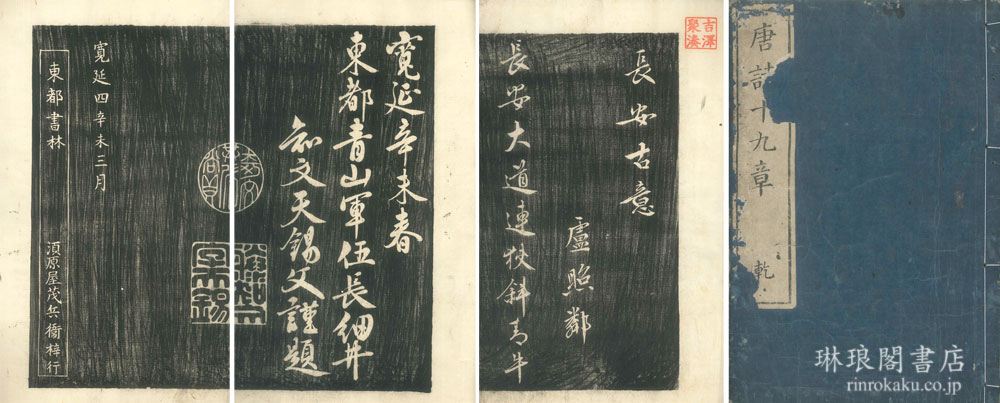 唐詩十九章 乾
長安古意
盧照鄰
長安大道連狹斜青牛
寛延辛未春
東都青山軍伍長細井
知文天錫父謹題
寛延四辛未三月
東都書林 須原屋茂兵衞梓行
琳琅閣書店
rinrokaku.co.jp